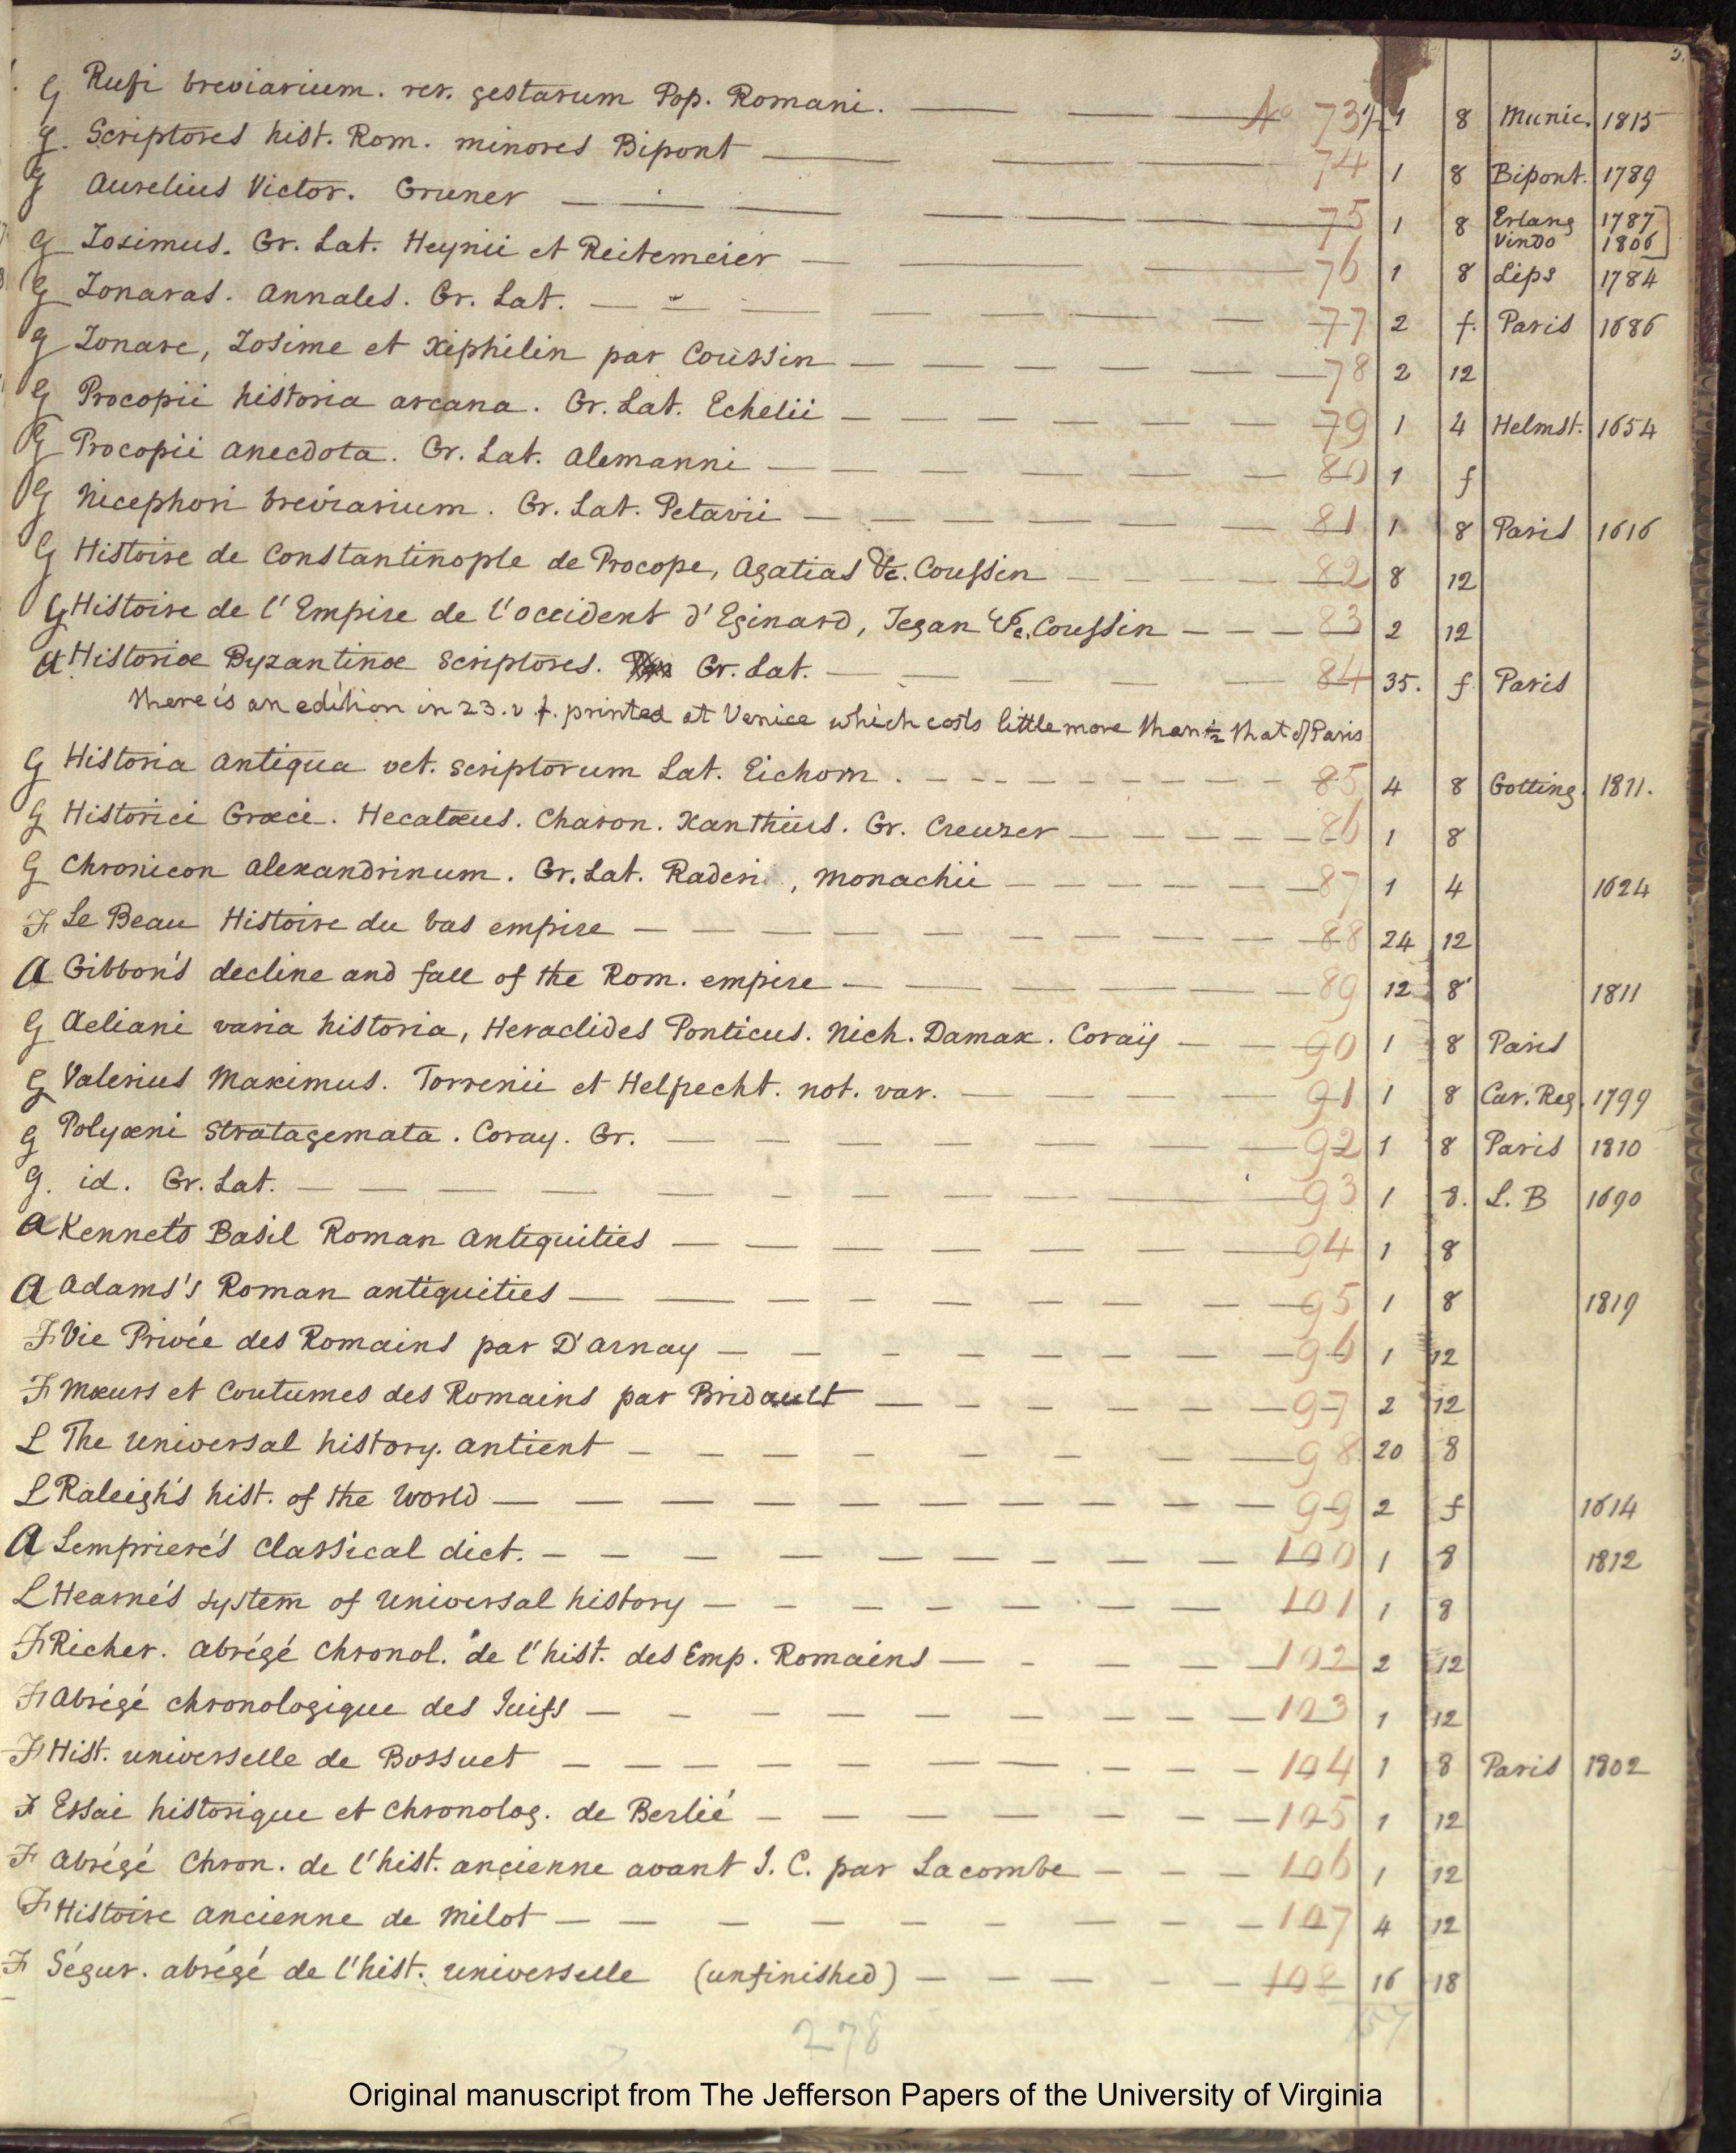 G Rufi breviarium. rer. gestarum Pop. Romani. — — — No 73 1 8 Munic. 1815
G. Scriptores hist. Rom. minores Bipont — — — 74 1 8 Bipont. 1789
G Aurelius Victor. Gruner — — — — — 75 1 8 Erlang 1787
Vindo 1806
G Zosimus. Gr. Lat. Heynii et Reitemeier — — — 76 1 8 Lips 1784
G Zonaras. Annales. Gr. Lat. — — — — — — 77 2 f. Paris 1686
G Zonare, Zosime et Xiphilin par Coussin — — — — — 78 2 12
G Procopii historia arcana. Gr. Lat. Echelii — — — — — 79 1 4 Helmst. 1654
G Procopii anecdota. Gr. Lat. Alemanni — — — — — 80 1 f
G Nicephori breviarium. Gr. Lat. Petavii — — — — — 81 1 8 Paris 1616
G Histoire de Constantinople de Procope, Agatias &c. Coussin — — — — 82 8 12
G Histoire de l'Empire de l'occident d'Eginard, Tegan &c. Coussin — — — 83 2 12
A Historiæ Byzantinæ Scriptores. Gr. Lat. — — — — — 84 35. f Paris
there is an edition in 23. v. f. printed at Venice which costs little more than ½ that of Paris
G Historia antiqua vet. scriptorum Lat. Eichorn. — — — — — 85 4 8 Gotting. 1811.
G Historici Græci. Hecatæus. Charon. Xanthius. Gr. Creuzer — — — — — 86 1 8
G Chronicon Alexandrinum. Gr. Lat. Raderi, Monachii — — — — — 87 1 4 1624
F Le Beau Histoire du bas empire — — — — — — — — 88 24 12
A Gibbon's decline and fall of the Rom. empire — — — — — — 89 12 8 1811
G Aeliani varia historia, Heraclides Ponticus. Nich. Damax. Coraÿ — — 90 1 8 Paris
G Valerius Maximus. Torrenii et Helfrecht. not. var. — — — — 91 1 8 Cur. Reg. 1799
G Polyæni Stratagemata. Coray. Gr. — — — — — — — 92 1 8 Paris 1810
G. id. Gr. Lat. — — — — — — — — — — 93 1 8. L. B 1690
A Kennet's Basil Roman Antiquities — — — — — — — 94 1 8
A Adams's Roman antiquities — — — — — — — — — 95 1 8 1819
F Vie Privée des Romains par D'Arnay — — — — — — — — 96 1 12
F Mœurs et Coutumes des Romains par Bridault — — — — — — 97 2 12
L The Universal history. antient — — — — — — — — 98 20 8
L Raleigh's hist. of the World — — — — — — — — — — 99 2 f 1614
A Lempriere's Classical dict. — — — — — — — — — 100 1 8 1812
L Hearne's system of Universal history — — — — — — — — 101 1 8
F Richer. abrégé chronol. de l'hist. des Emp. Romains — — — — — 102 2 12
F Abrégé chronologique des Juifs — — — — — — — — — 103 1 12
F Hist. universelle de Bossuet — — — — — — — — — 104 1 8 Paris 1802
F Essai historique et chronolog. de Berlié — — — — — — — 105 1 12
F Abrégé Chron. de l'hist. ancienne avant J. C. par Lacombe — — — 106 1 12
F Histoire ancienne de Milot — — — — — — — — — 107 4 12
F Ségur. abrégé de l'hist. universelle (unfinished) — — — — — 108 16 18
278
Original manuscript from The Jefferson Papers of the University of Virginia